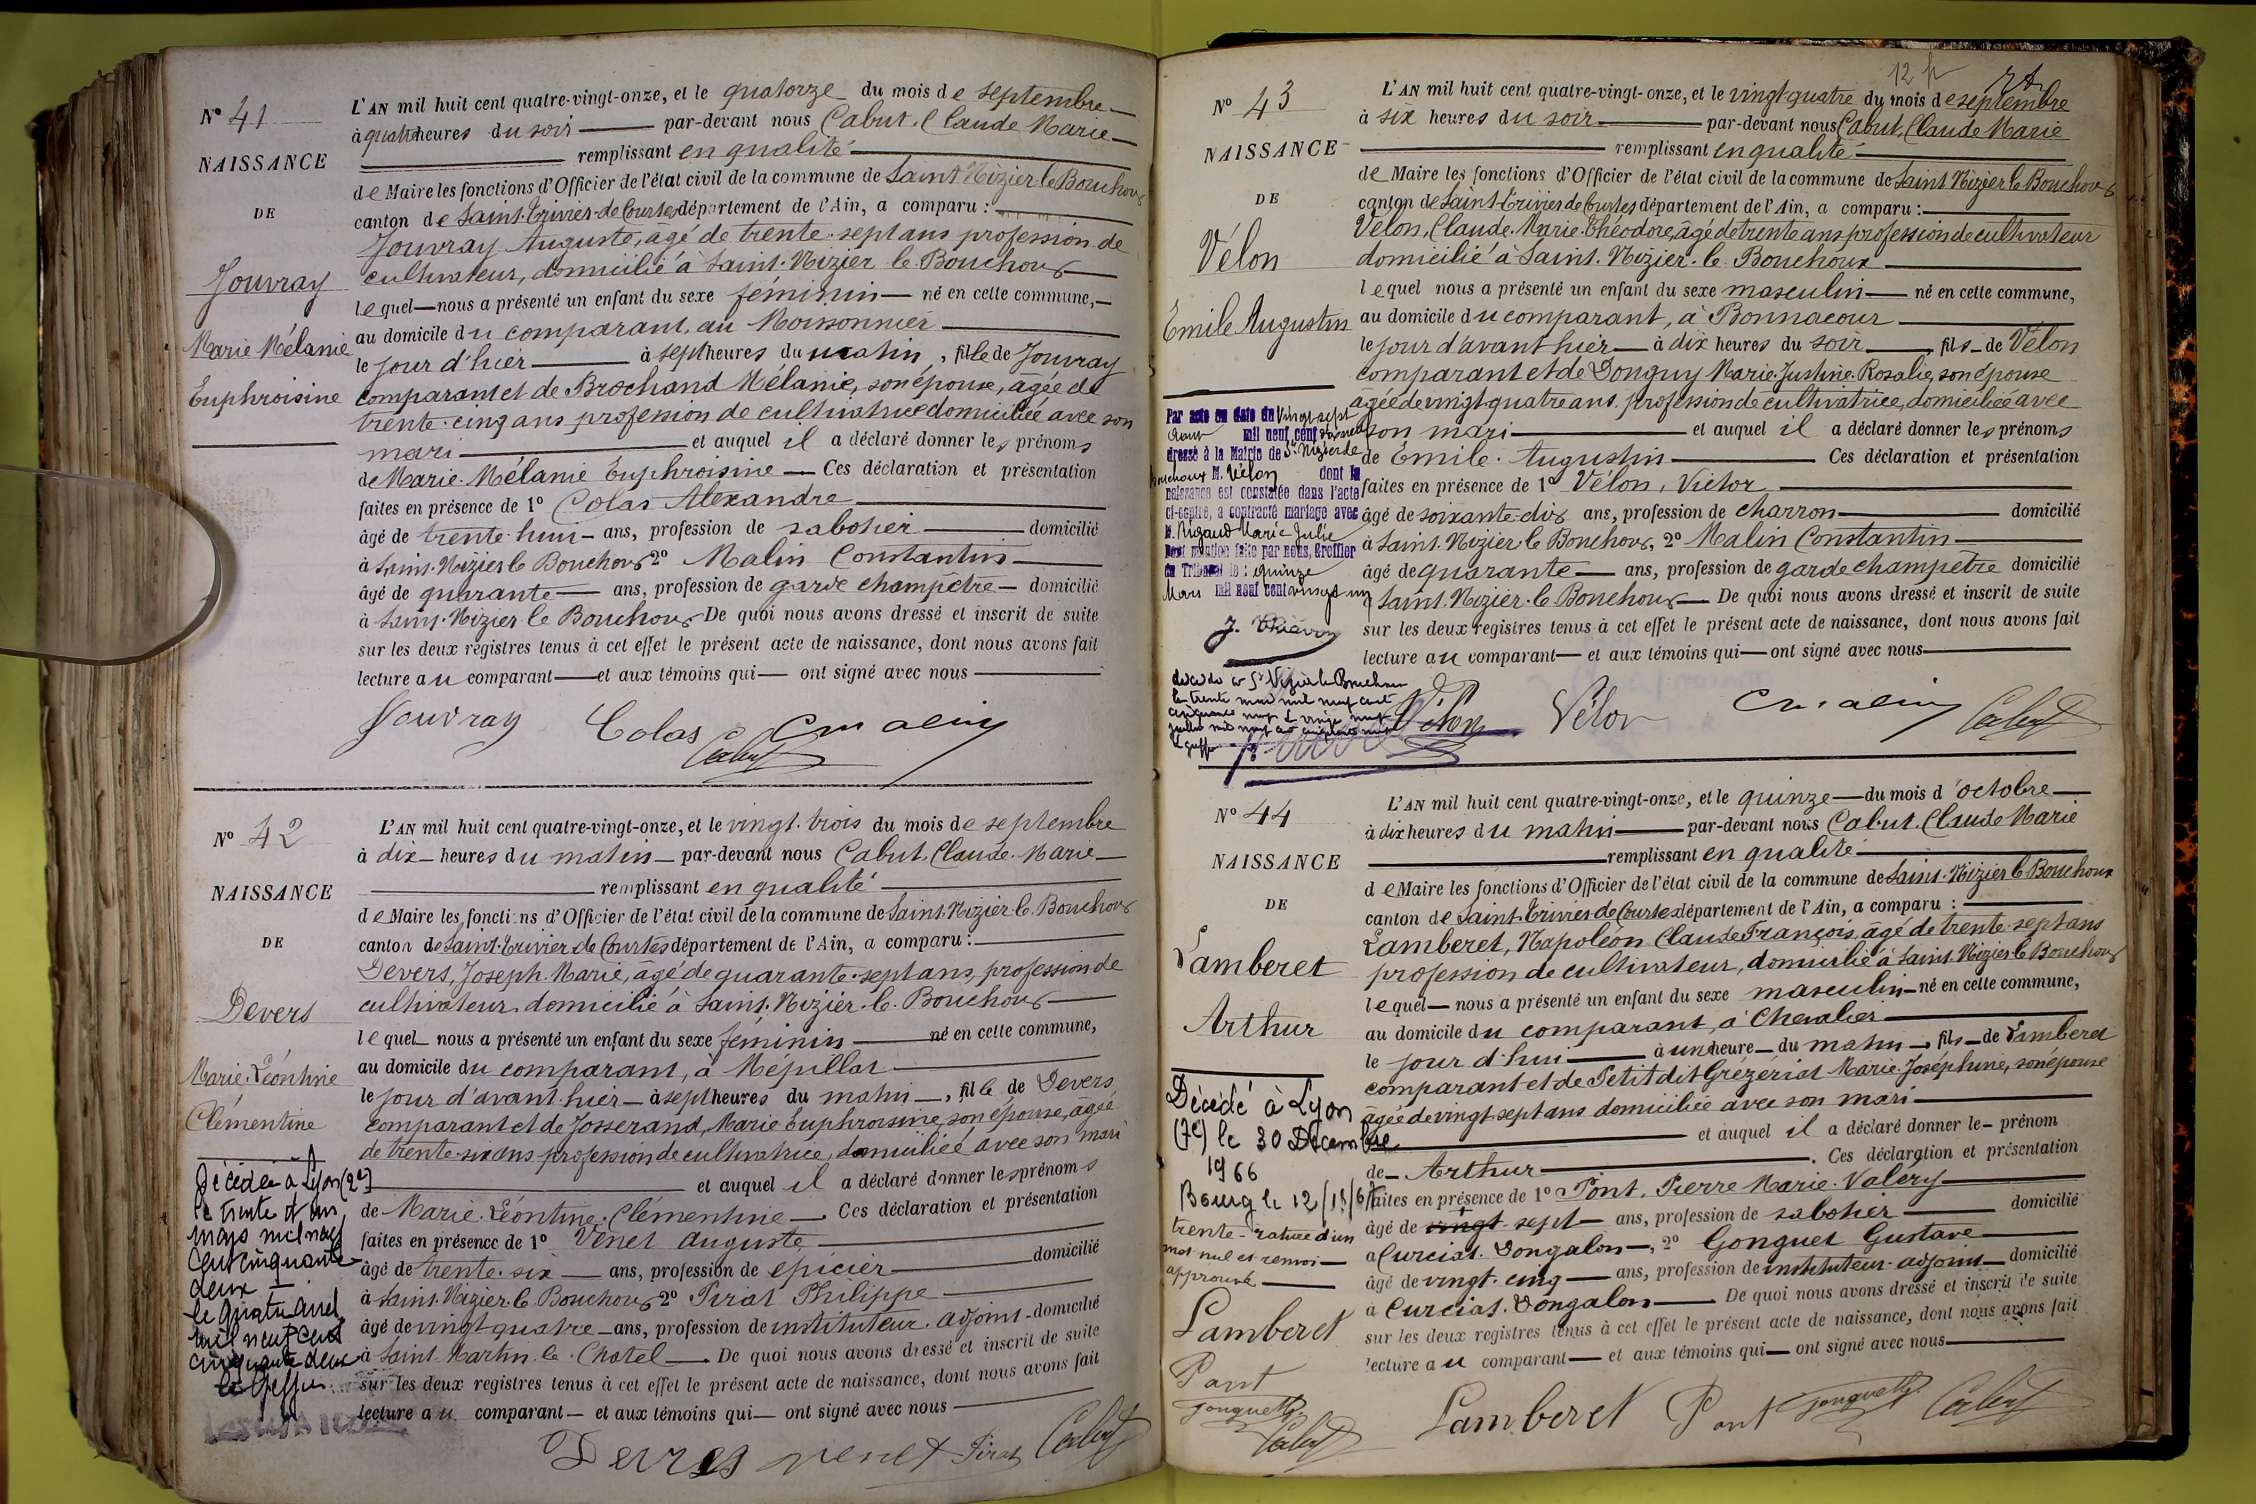 N° 41
NAISSANCE
DE
Jouvray
Marie Mélanie
Euphroisine
L'AN mil huit cent quatre-vingt-onze, et le quatorze du mois de septembre
à quatre heures du soir par-devant nous Cabut, Claude Marie
remplissant en qualité
de Maire les fonctions d'Officier de l'état civil de la commune de Saint Nizier le Bouchoux
canton de Saint-Trivier-de Courtes département de l'Ain, a comparu :
Jouvray Auguste, âgé de trente-sept ans profession de
cultivateur, domicilié à Saint-Nizier le Bouchoux
lequel nous a présenté un enfant du sexe féminin né en cette commune,
au domicile du comparant, au Moissonnier
le jour d'hier à sept heures du matin, fille de Jouvray
comparant et de Brochand Mélanie, son épouse, âgée de
trente-cinq ans profession de cultivatrice domiciliée avec son
mari et auquel il a déclaré donner les prénoms
de Marie Mélanie Euphroisine Ces déclaration et présentation
faites en présence de 1° Colas Alexandre
âgé de trente-huit ans, profession de sabotier domicilié
à Saint-Nizier le Bouchoux 2° Malin Constantin
âgé de quarante ans, profession de garde champêtre domicilié
à Saint-Nizier le Bouchoux De quoi nous avons dressé et inscrit de suite
sur les deux registres tenus à cet effet le présent acte de naissance, dont nous avons fait
lecture au comparant et aux témoins qui ont signé avec nous
Jouvray Colas C Malin
Cabut
N° 42
NAISSANCE
DE
Devers
Marie Léontine
Clémentine
Décédée à Lyon (2e)
le trente et un
mars mil neuf
cent cinquante
deux
le quatre avril
mil neuf cent
cinquante deux
Le Greffier
L'AN mil huit cent quatre-vingt-onze, et le vingt-trois du mois de septembre
à dix heures du matin par-devant nous Cabut, Claude Marie
remplissant en qualité
de Maire les fonctions d'Officier de l'état civil de la commune de Saint-Nizier-le-Bouchoux
canton de Saint-Trivier de Courtes département de l'Ain, a comparu :
Devers, Joseph Marie, âgé de quarante-sept ans, profession de
cultivateur domicilié à Saint-Nizier-le Bouchoux
lequel nous a présenté un enfant du sexe féminin né en cette commune,
au domicile du comparant, à Mépillat
le jour d'avant-hier à sept heures du matin, fille de Devers
comparant et de Josserand, Marie Euphroisine, son épouse, âgée
de trente-six ans profession de cultivatrice, domiciliée avec son mari
et auquel il a déclaré donner les prénoms
de Marie-Léontine-Clémentine Ces déclaration et présentation
faites en présence de 1° Venet Auguste
âgé de trente-six ans, profession de épicier domicilié
à Saint-Nizier-le Bouchoux 2° Pirat Philippe
âgé de vingt-quatre ans, profession de instituteur-adjoint domicilié
à Saint-Martin-le-Chatel De quoi nous avons dressé et inscrit de suite
sur les deux registres tenus à cet effet le présent acte de naissance, dont nous avons fait
lecture au comparant et aux témoins qui ont signé avec nous
Devers venet Pirat Cabut
12 f
N° 43
NAISSANCE
DE
Vélon
Emile Augustin
Par acte en date du vingt sept
mil neuf cent
dressé à la Mairie de St Nizier le
Bouchoux M. Vélon dont la
naissance est constatée dans l'acte
ci-contre, a contracté mariage avec
M. Rigaud Marie Julie
Dont mention faite par nous, Greffier
du Tribunal le : quinze
Mars mil neuf cent vingt un
décédé à St Nizier le Bouchoux
le trente mai mil neuf cent
cinquante neuf le vingt neuf
juillet mil neuf cent cinquante neuf
le greffier
L'AN mil huit cent quatre-vingt-onze, et le vingt-quatre du mois de septembre
à six heures du soir par-devant nous Cabut, Claude Marie
remplissant en qualité
de Maire les fonctions d'Officier de l'état civil de la commune de Saint Nizier le Bouchoux
canton de Saint-Trivier de Courtes département de l'Ain, a comparu :
Vélon, Claude-Marie-Théodore, âgé de trente ans profession de cultivateur
domicilié à Saint-Nizier-le-Bouchoux
lequel nous a présenté un enfant du sexe masculin né en cette commune,
au domicile du comparant, à Bonnacour
le jour d'avant hier à dix heures du soir fils de Vélon
comparant et de Donguy Marie-Justine-Rosalie, son épouse
âgée de vingt-quatre ans profession de cultivatrice, domiciliée avec
son mari et auquel il a déclaré donner les prénoms
de Emile-Augustin Ces déclaration et présentation
faites en présence de 1° Vélon, Victor
âgé de soixante-dix ans, profession de charron domicilié
à Saint-Nizier-le Bouchoux, 2° Malin Constantin
âgé de quarante ans, profession de garde champêtre domicilié
à Saint-Nizier-le Bouchoux De quoi nous avons dressé et inscrit de suite
sur les deux registres tenus à cet effet le présent acte de naissance, dont nous avons fait
lecture au comparant et aux témoins qui ont signé avec nous
Vélon Vélon C Malin Cabut
N° 44
NAISSANCE
DE
Lamberet
Arthur
Décédé à Lyon
(7e) le 30 Décembre
1966
trente - rature d'un
mot nul et renvoi
approuvé
Lamberet
Pont
Gonguet G.
Cabut
L'AN mil huit cent quatre-vingt-onze, et le quinze du mois d'octobre
à dix heures du matin par-devant nous Cabut, Claude Marie
remplissant en qualité
de Maire les fonctions d'Officier de l'état civil de la commune de Saint-Nizier le Bouchoux
canton de Saint-Trivier de Courtes département de l'Ain, a comparu :
Lamberet, Napoléon Claude François, âgé de trente-sept ans
profession de cultivateur, domicilié à Saint-Nizier le Bouchoux
lequel nous a présenté un enfant du sexe masculin né en cette commune,
au domicile du comparant, à Chevalier
le jour d'hui à une heure du matin fils de Lamberet
comparant et de Petit dit Grézériat Marie-Joséphine, son épouse
âgée de vingt-sept ans domiciliée avec son mari
et auquel il a déclaré donner le prénom
de Arthur. Ces déclaration et présentation
faites en présence de 1° Pont, Pierre Marie-Valéry
âgé de vingt-sept ans, profession de sabotier domicilié
à Curciat-Dongalon, 2° Gonguet Gustave
âgé de vingt-cinq ans, profession de instituteur-adjoint domicilié
à Curciat-Dongalon De quoi nous avons dressé et inscrit de suite
sur les deux registres tenus à cet effet le présent acte de naissance, dont nous avons fait
lecture au comparant et aux témoins qui ont signé avec nous
Lamberet Pont Gonguet G. Cabut